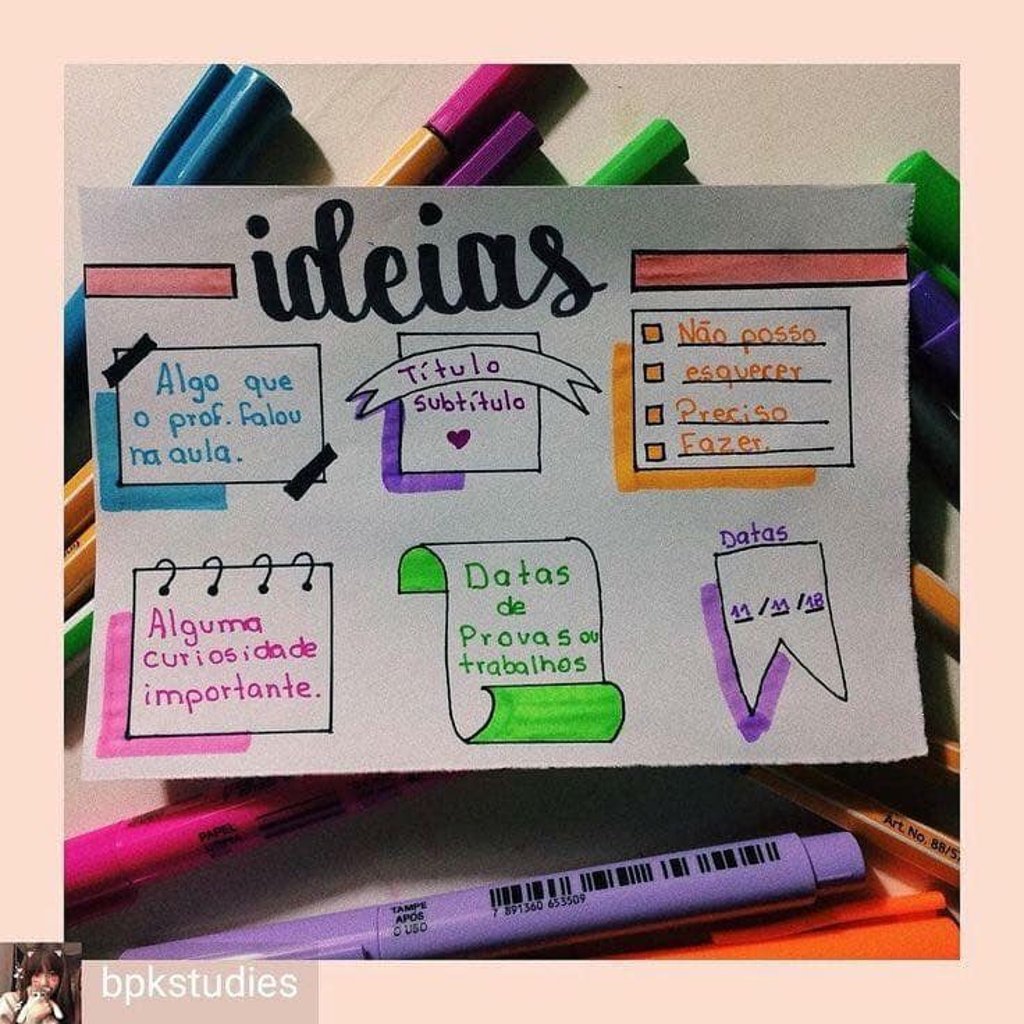 ideias
Algo que
o prof. falou
na aula.
Título
subtítulo
Não posso
esquecer
Preciso
Fazer.
Alguma
curiosidade
importante.
Datas
de
Provas ou
trabalhos
Datas
11/11/18
PAPEL
TAMPE
APÓS
O USO
7 891360 653509
Art. No. 88/5
bpkstudies